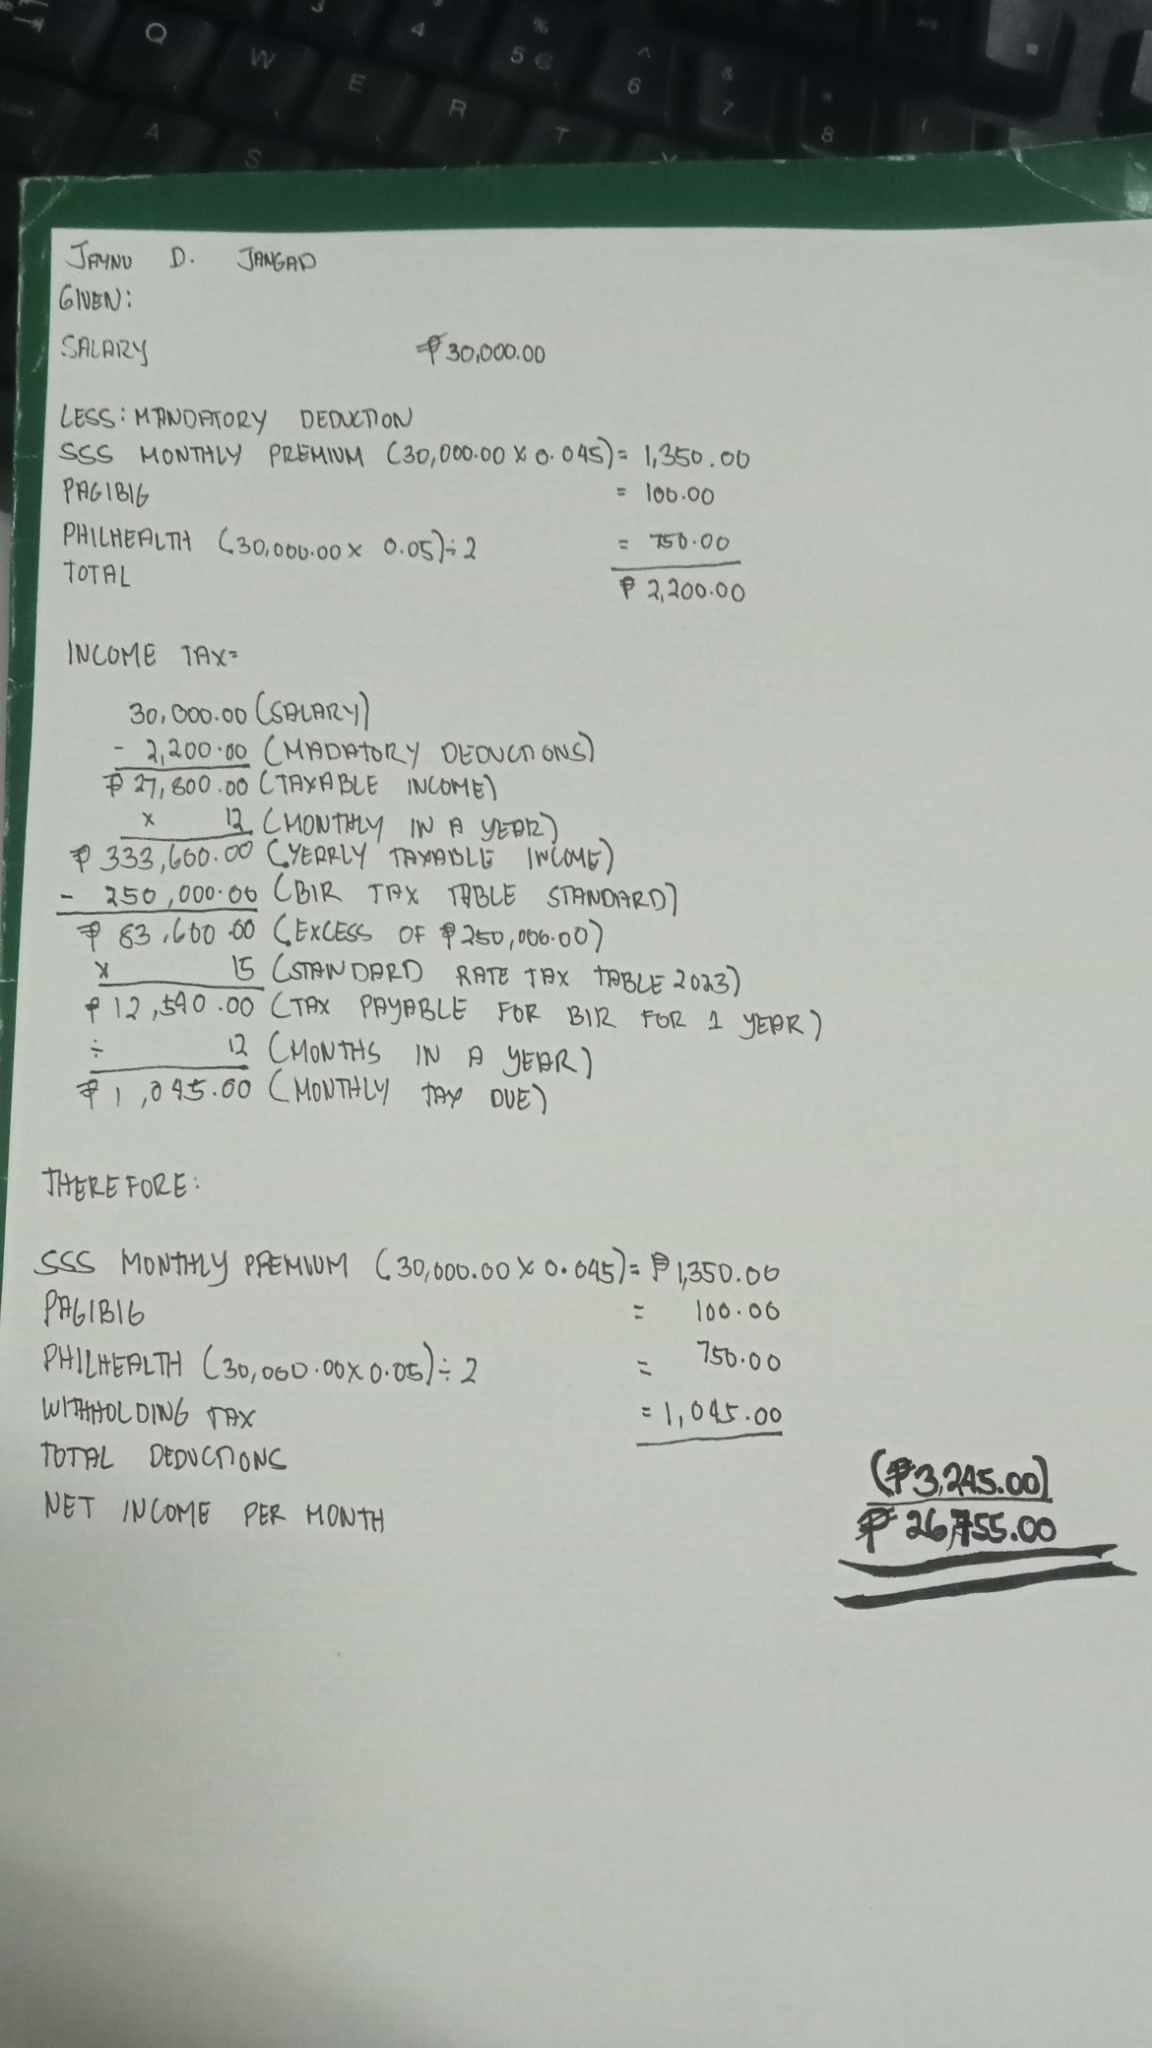 Q W E R 4 % 5 € ^ 6 & 7 * 8
A S T
JAYNU D. JANGAD
GIVEN:
SALARY ₱30,000.00
LESS: MANDATORY DEDUCTION
SSS MONTHLY PREMIUM (30,000.00 x 0.045) = 1,350.00
PAGIBIG = 100.00
PHILHEALTH (30,000.00 x 0.05) ÷ 2 = 750.00
TOTAL ₱ 2,200.00
INCOME TAX=
30,000.00 (SALARY)
- 2,200.00 (MADATORY DEDUCTIONS)
₱ 27,800.00 (TAXABLE INCOME)
x 12 (MONTHLY IN A YEAR)
₱ 333,600.00 (YEARLY TAXABLE INCOME)
- 250,000.00 (BIR TAX TABLE STANDARD)
₱ 83,600.00 (EXCESS OF ₱250,000.00)
x 15 (STANDARD RATE TAX TABLE 2023)
₱ 12,540.00 (TAX PAYABLE FOR BIR FOR 1 YEAR)
÷ 12 (MONTHS IN A YEAR)
₱ 1,045.00 (MONTHLY TAX DUE)
THEREFORE:
SSS MONTHLY PREMIUM (30,000.00 x 0.045) = ₱1,350.00
PAGIBIG = 100.00
PHILHEALTH (30,000.00 x 0.05) ÷ 2 = 750.00
WITHHOLDING TAX = 1,045.00
TOTAL DEDUCTIONS (₱3,245.00)
NET INCOME PER MONTH ₱ 26,755.00